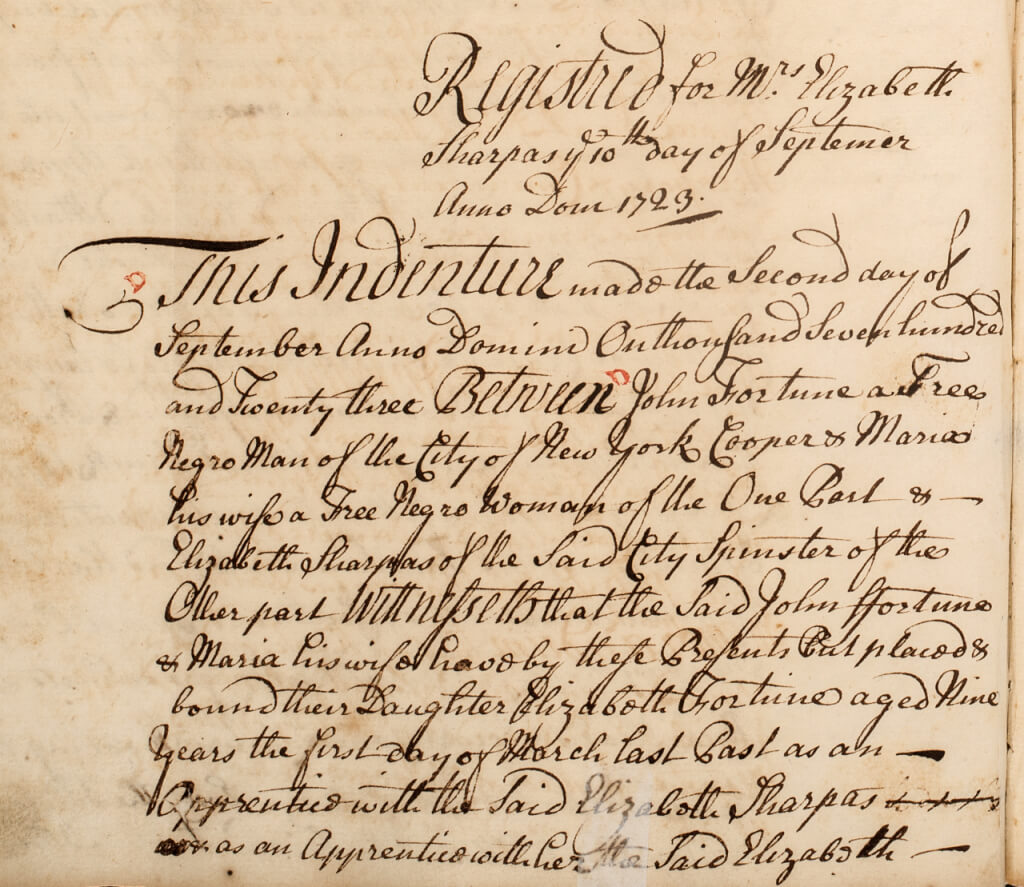 Registred for Mrs Elizabeth
Sharpas ye 10th day of Septemer
Anno Dom 1723.
This Indenture made the Second day of
September Anno Domini Onthousand Seven hundred
and Twenty three Between John Fortune a Free
Negro Man of the City of New York Cooper & Maria
his wife a Free Negro Woman of the One Part & —
Elizabeth Sharpas of the Said City Spinster of the
Other part Wittnesseth that the Said John ffortune
& Maria his wife have by these Presents Put placed &
bound their Daughter Elizabeth Fortune aged Nine
Years the first day of March last Past as an —
Apprentice with the Said Elizabeth Sharpas
as an Apprentice with her the Said Elizabeth —